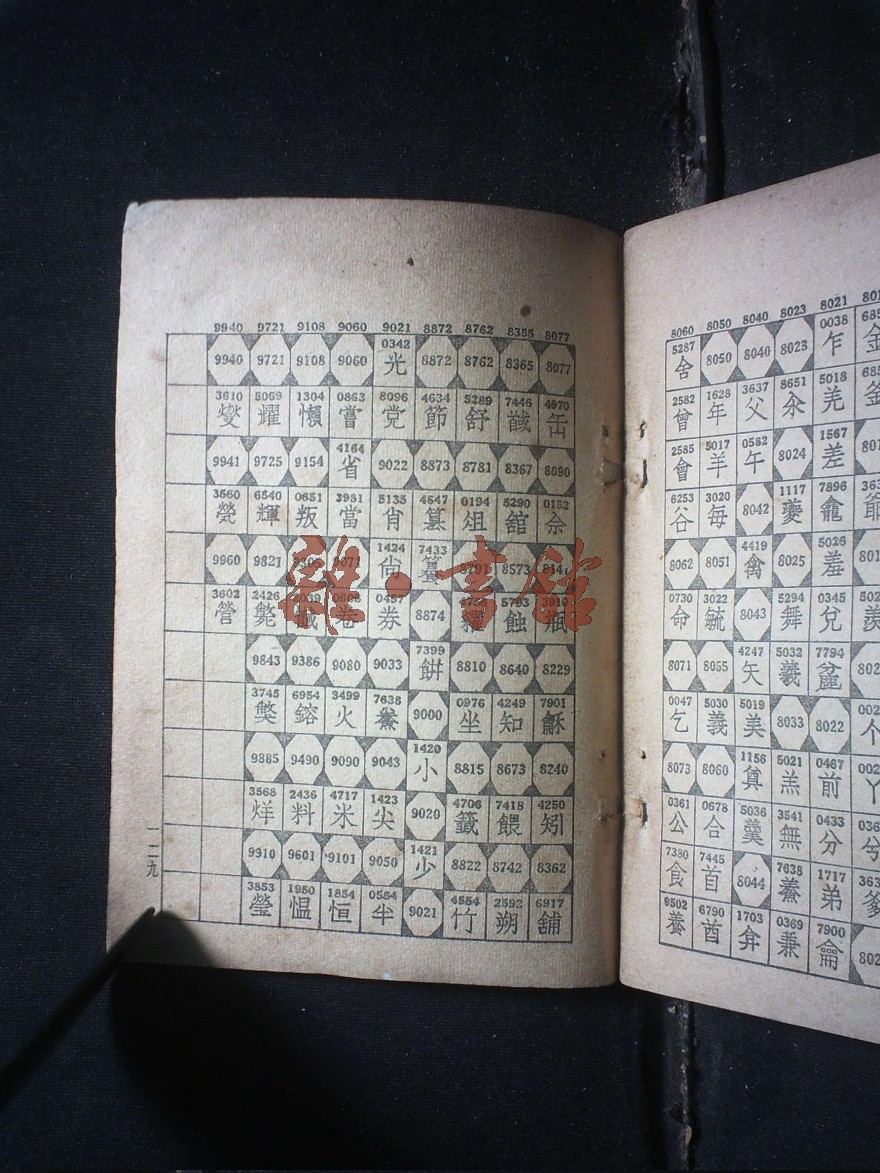 9940 9721 9108 9060 9021 8872 8762 8355 8077
9940 9721 9108 9060 0342 光 8872 8762 8365 8077
3610 燮 5069 耀 1304 懶 0863 嘗 8096 党 4634 節 5289 舒 7446 4970 缶
9941 9725 9154 4164 省 9022 8873 8781 8367 8090
3560 煢 6540 輝 0651 叛 3981 當 5135 肖 4647 篡 0194 俎 5290 舘 0152 佘
9960 9821 1424 尙 7433 8791 8573
3602 營 2426 斃 券 8874 蝕 3910 瓶
9843 9386 9080 9033 7399 餅 8810 8640 8229
3745 獘 6954 鎔 3499 火 7638 鯗 9000 0976 坐 4249 知 7901 龢
9885 9490 9090 9043 1420 小 8815 8673 8240
3568 烊 2436 料 4717 米 1423 尖 9020 4706 籤 7418 餵 4250 矧
9910 9601 9101 9050 1421 少 8822 8742 8362
3853 瑩 1950 愠 1854 恒 0584 半 9021 4554 竹 2592 朔 6917 舖
一二九
雜·書館
8060 8050 8040 8023 8021 801
5287 舍 8050 8040 8023 0038 乍 685 金
2582 曾 1628 年 3637 父 8651 氽 5018 羌 685 釜
2585 會 5017 羊 0582 午 8024 1567 差 801
6253 谷 3020 每 8042 1117 夔 7896 龕 363 爺
8062 8051 4419 禽 8025 5026 羞 801
0730 命 3022 毓 8043 5294 舞 0345 兌 502 羨
8071 8055 4247 矢 5032 羲 7794 802
0047 乞 5030 義 5019 美 8033 8022 002 个
8073 8060 1156 奠 5021 羔 0467 前 002 丫
0361 公 0678 合 5036 羹 3541 無 0433 分 036 兮
7380 食 7445 首 8044 7638 鯗 1717 弟 爹
9502 養 6790 酋 1703 弇 0369 兼 7900 龠 802